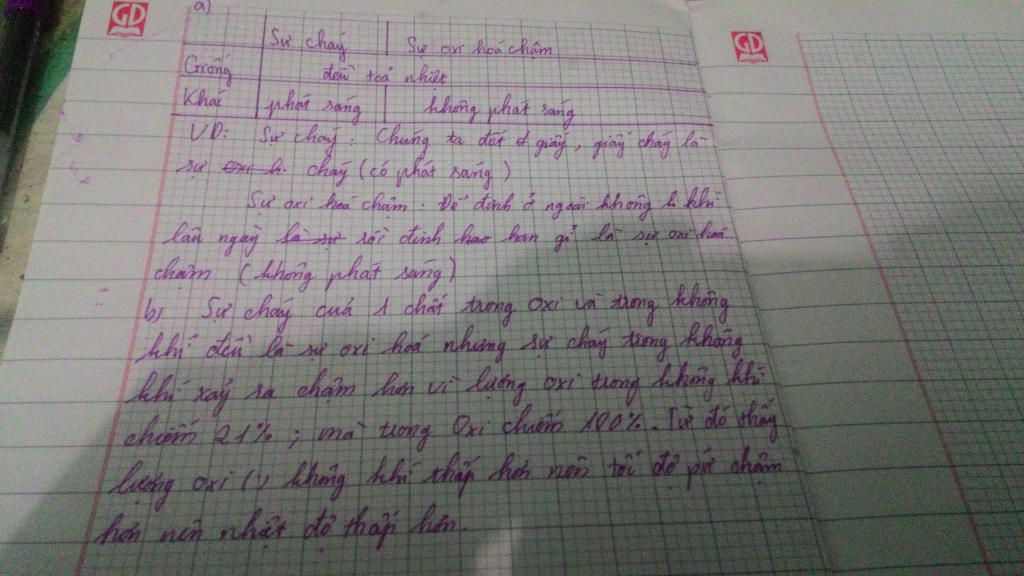 GD
GD
a)
Sự cháy | Sự oxi hoá chậm
Giống | đều toả nhiệt
Khác | phát sáng | không phát sáng
VD: Sự cháy: Chúng ta đốt giấy, giấy cháy là
sự oxi h. cháy (có phát sáng)
Sự oxi hoá chậm: Để đinh ở ngoài không khí
lâu ngày là sự rồi đinh han gỉ là sự oxi hoá
chậm (không phát sáng)
b) Sự cháy của 1 chất trong oxi và trong không
khí đều là sự oxi hoá nhưng sự cháy trong không
khí xảy ra chậm hơn vì lượng oxi trong không khí
chiếm 21%; mà trong Oxi chiếm 100%. Từ đó thấy
lượng oxi () không khí thấp hơn nên tốc độ pứ chậm
hơn nên nhiệt độ thấp hơn.